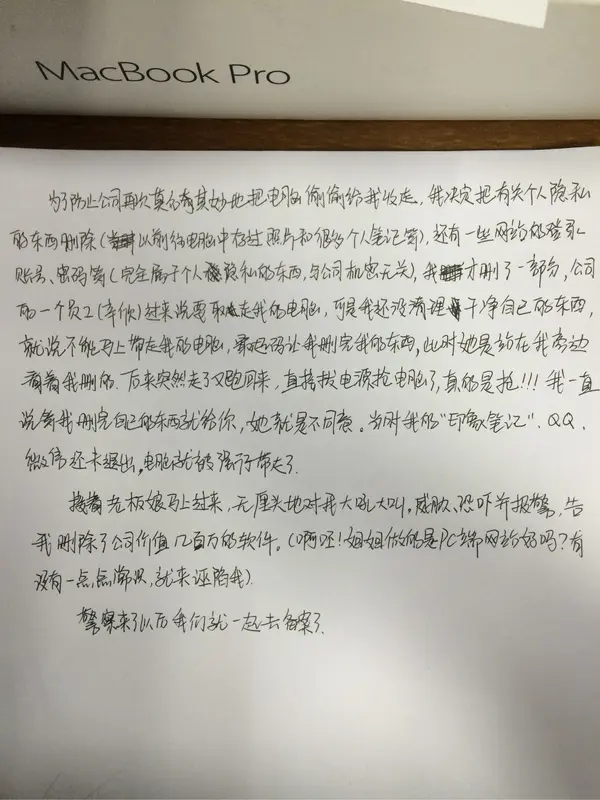 MacBook Pro
为了防止公司再次莫名其妙地把电脑偷偷给我收走，我决定把有关个人隐私
的东西删除（以前给电脑中存过照片和很多个人笔记等），还有一些网站的登录
账号、密码等（完全属于个人隐私的东西，与公司机密无关），我才删了一部分，公司
的一个员工（辛欣）过来说要取走我的电脑，可是我还没清理干净自己的东西，
就说不能马上带走我的电脑，最起码让我删完我的东西，此时她是站在我旁边
看着我删的。后来突然走了又跑回来，直接拔电源抢电脑了，真的是抢！！！我一直
说等我删完自己的东西就给你，她就是不同意。当时我的“印象笔记”、QQ、
微信还未退出，电脑就被强行带走了。
接着老板娘马上过来，无厘头地对我大吼大叫，威胁、恐吓并报警，告
我删除了公司价值几百万的软件。（啊呸！姐姐做的是PC端网站好吗？有
没有一点点常识，就来诬陷我）
警察来了以后我们就一起去备案了.